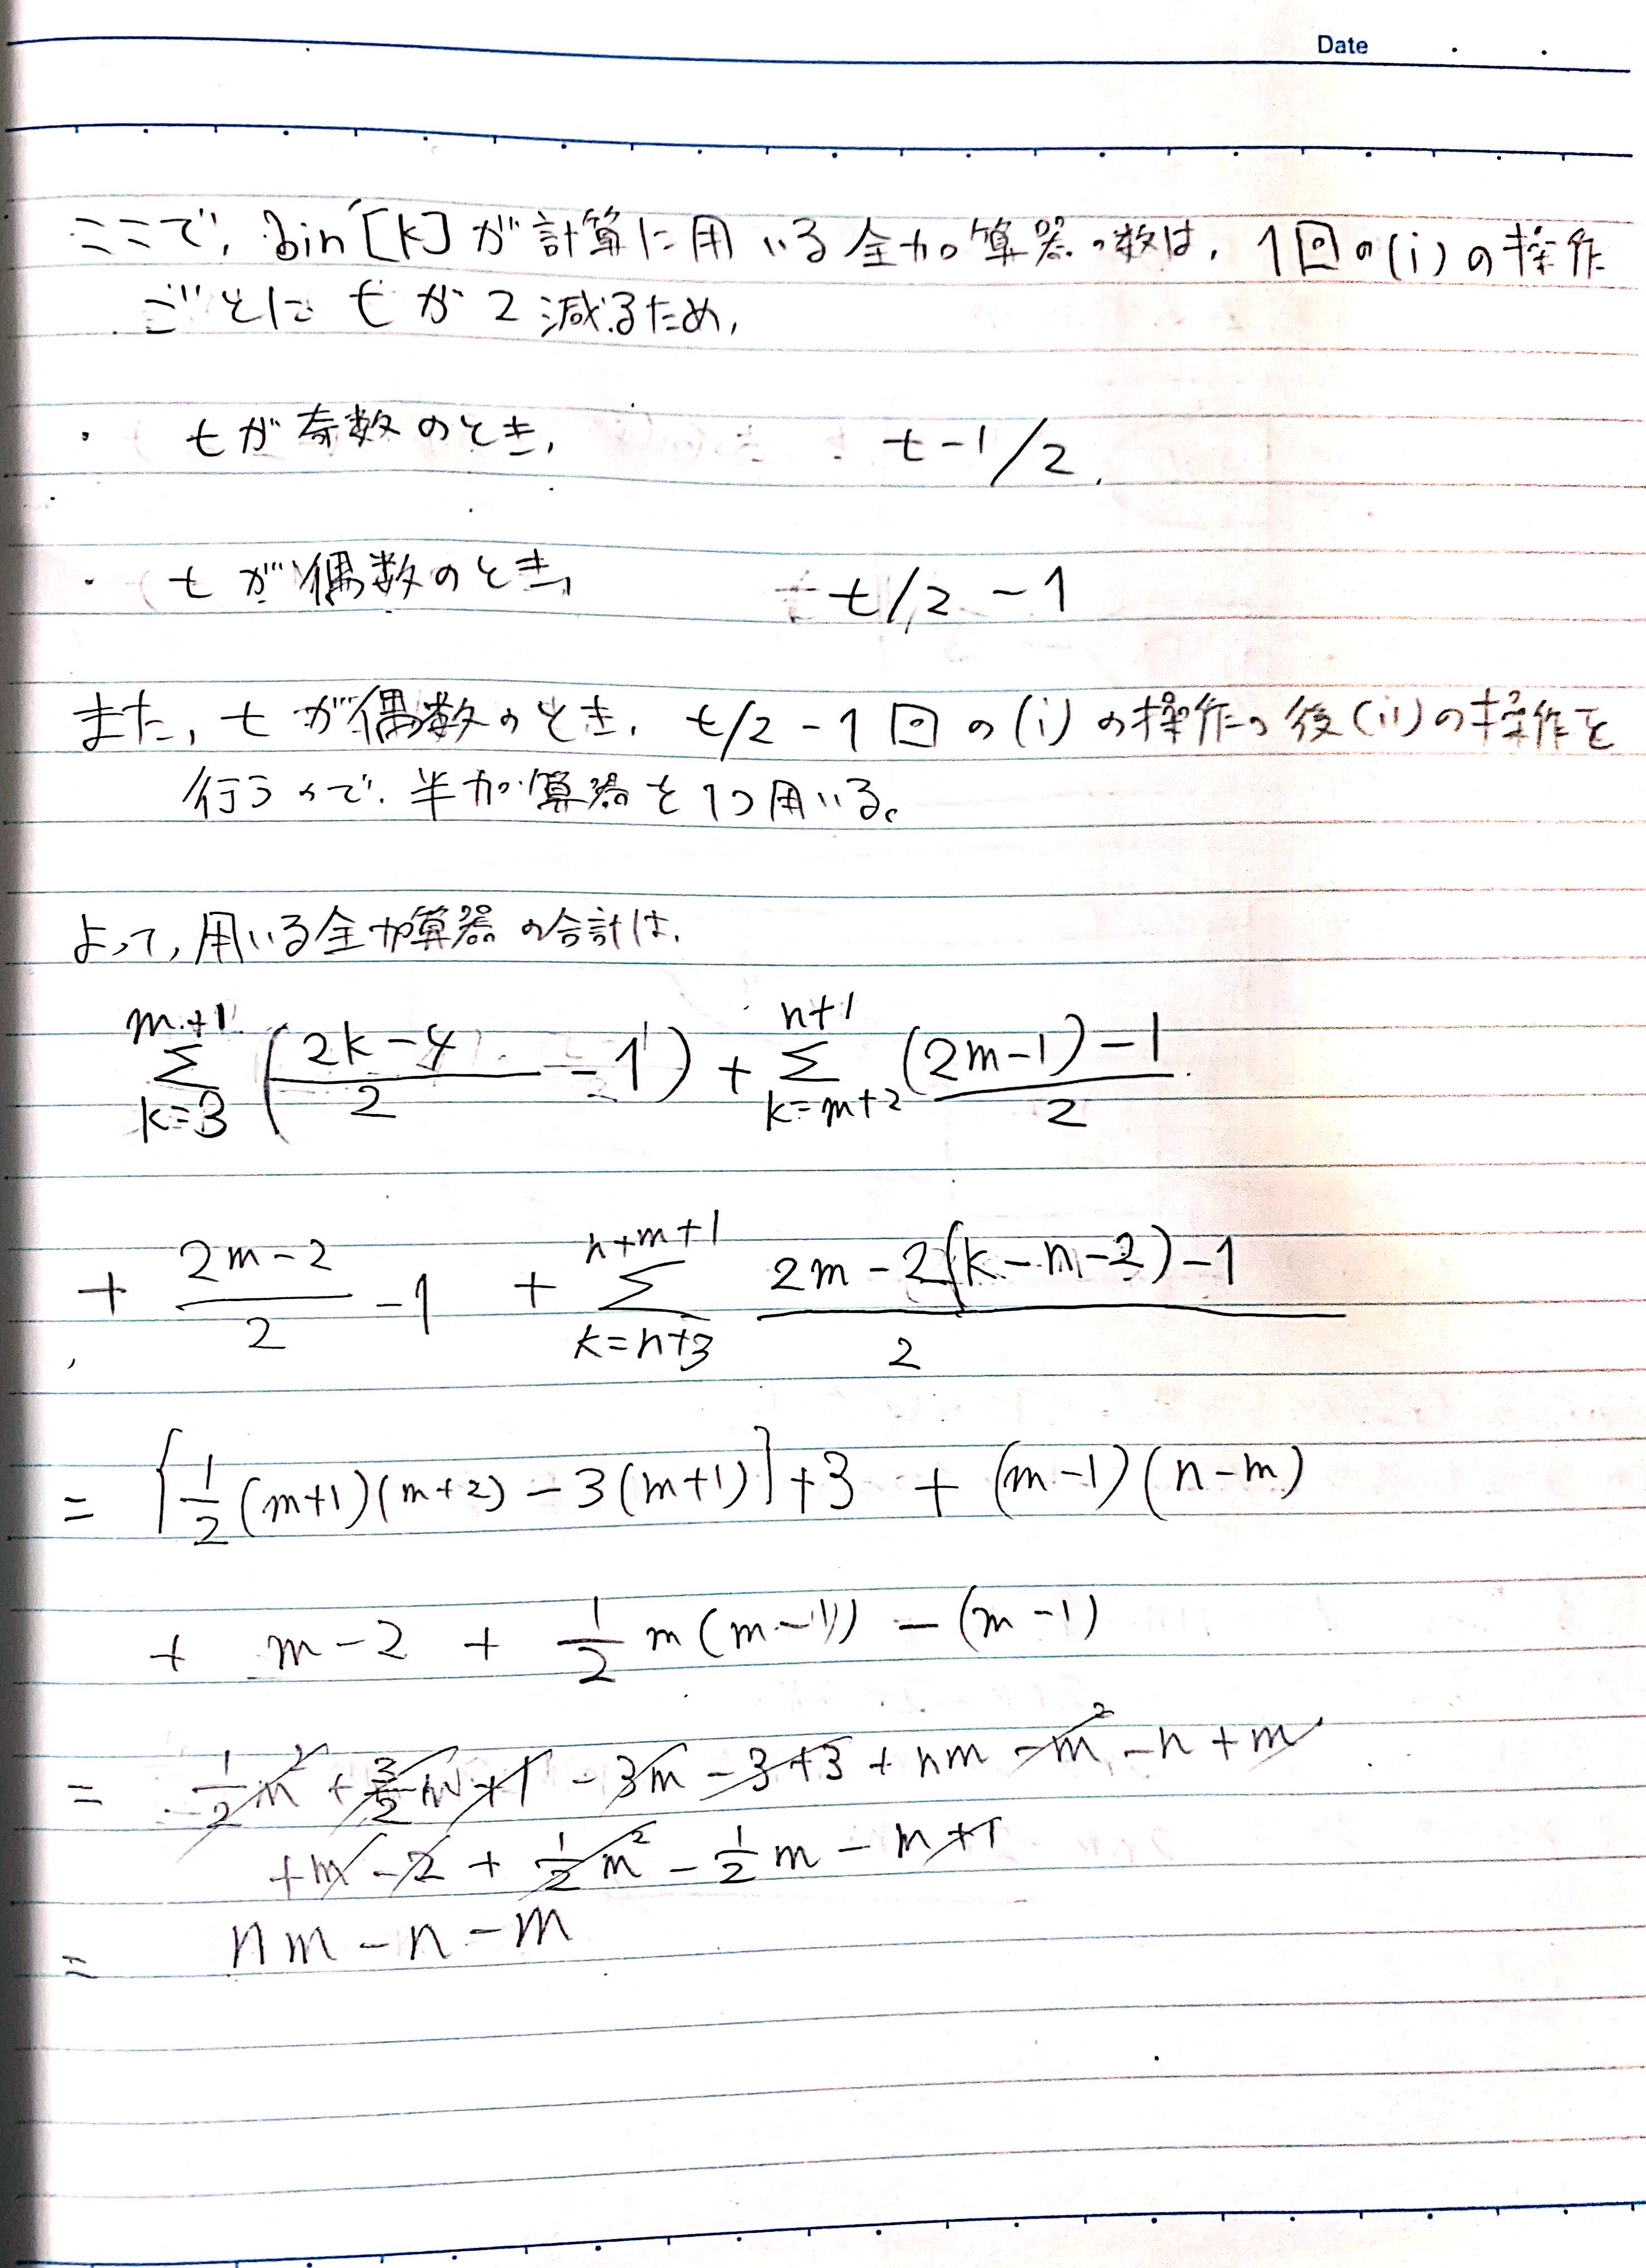 Date
ここで, bin[k]が計算に用いる全加算器の数は, 1回の(i)の操作
ごとに t が 2 減るため,
・ tが奇数のとき, t-1/2,
・ tが偶数のとき, t/2 - 1
また, t が偶数のとき, t/2 - 1 回の(i)の操作の後(ii)の操作を
行うので, 半加算器を1つ用いる。
よって, 用いる全加算器の合計は,
\sum_{k=3}^{m+1} ( \frac{2k-4}{2} - 1 ) + \sum_{k=m+2}^{n+1} \frac{(2m-1)-1}{2}
+ \frac{2m-2}{2} - 1 + \sum_{k=n+3}^{n+m+1} \frac{2m-2(k-n-2)-1}{2}
= { \frac{1}{2}(m+1)(m+2) - 3(m+1) } + 3 + (m-1)(n-m)
+ m-2 + \frac{1}{2}m(m-1) - (m-1)
= \frac{1}{2}m^2 + \frac{3}{2}m + 1 - 3m - 3 + 3 + nm - m^2 - n + m
+ m - 2 + \frac{1}{2}m^2 - \frac{1}{2}m - m + 1
= nm - n - m